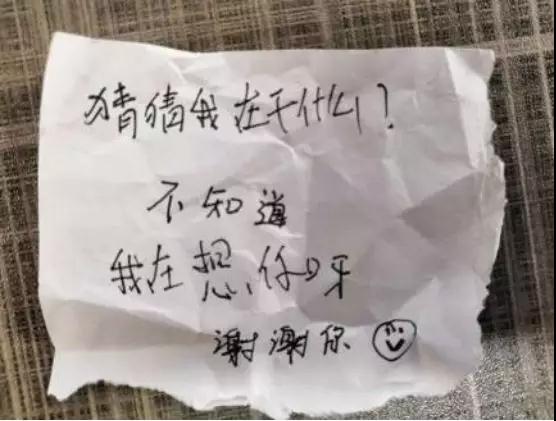 猜猜我在干什么?
不知道
我在想你呀
谢谢你